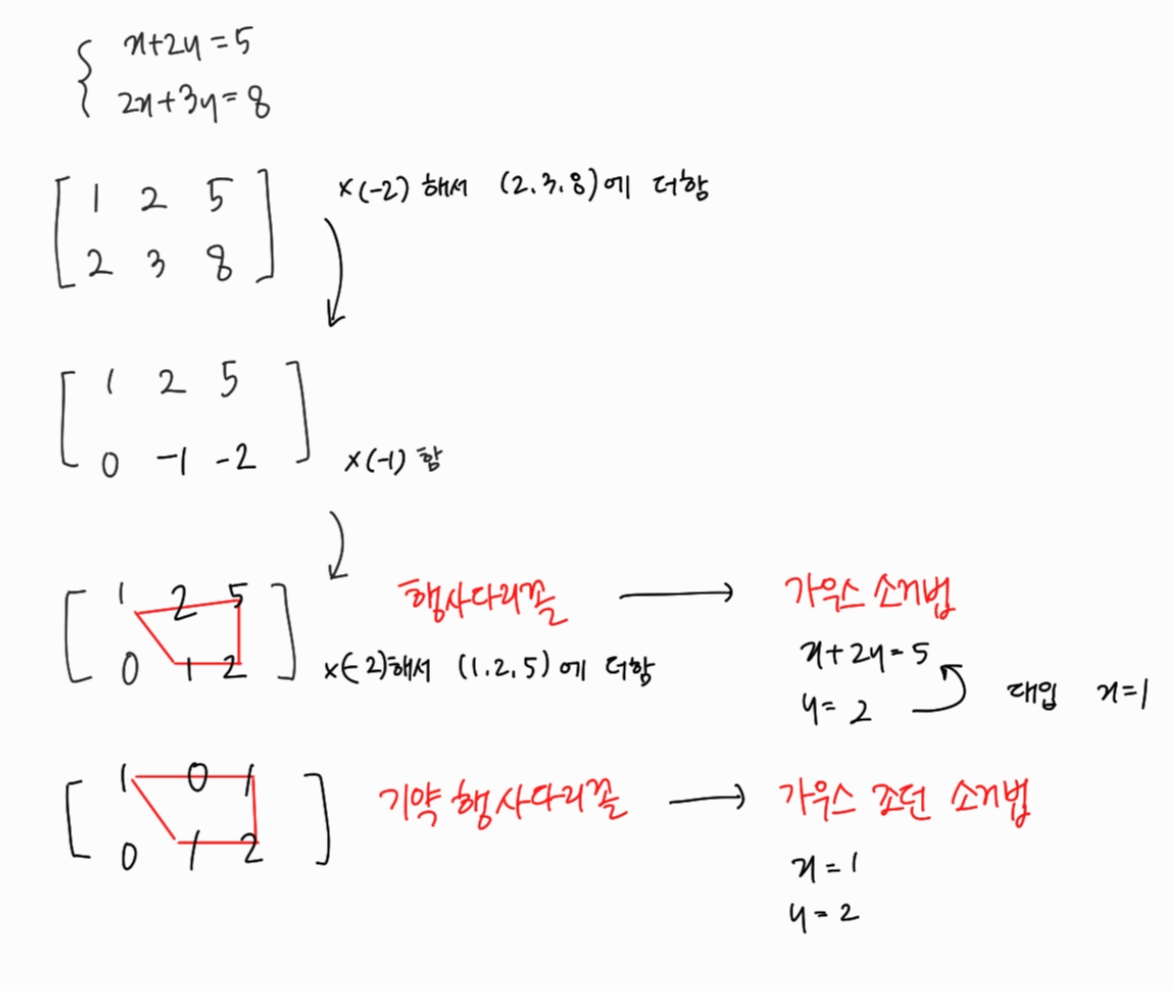 x+2y=5
2x+3y=8
1 2 5
×(-2) 해서 (2.3.8)에 더함
2 3 8
1 2 5
0 -1 -2
×(-1) 함
1 2 5
행사다리꼴 → 가우스 소거법
0 1 2
×(-2)해서 (1.2.5)에 더함
x+2y=5
y=2
대입 x=1
1 0 1
0 1 2
기약 행사다리꼴 → 가우스 조던 소거법
x=1
y=2